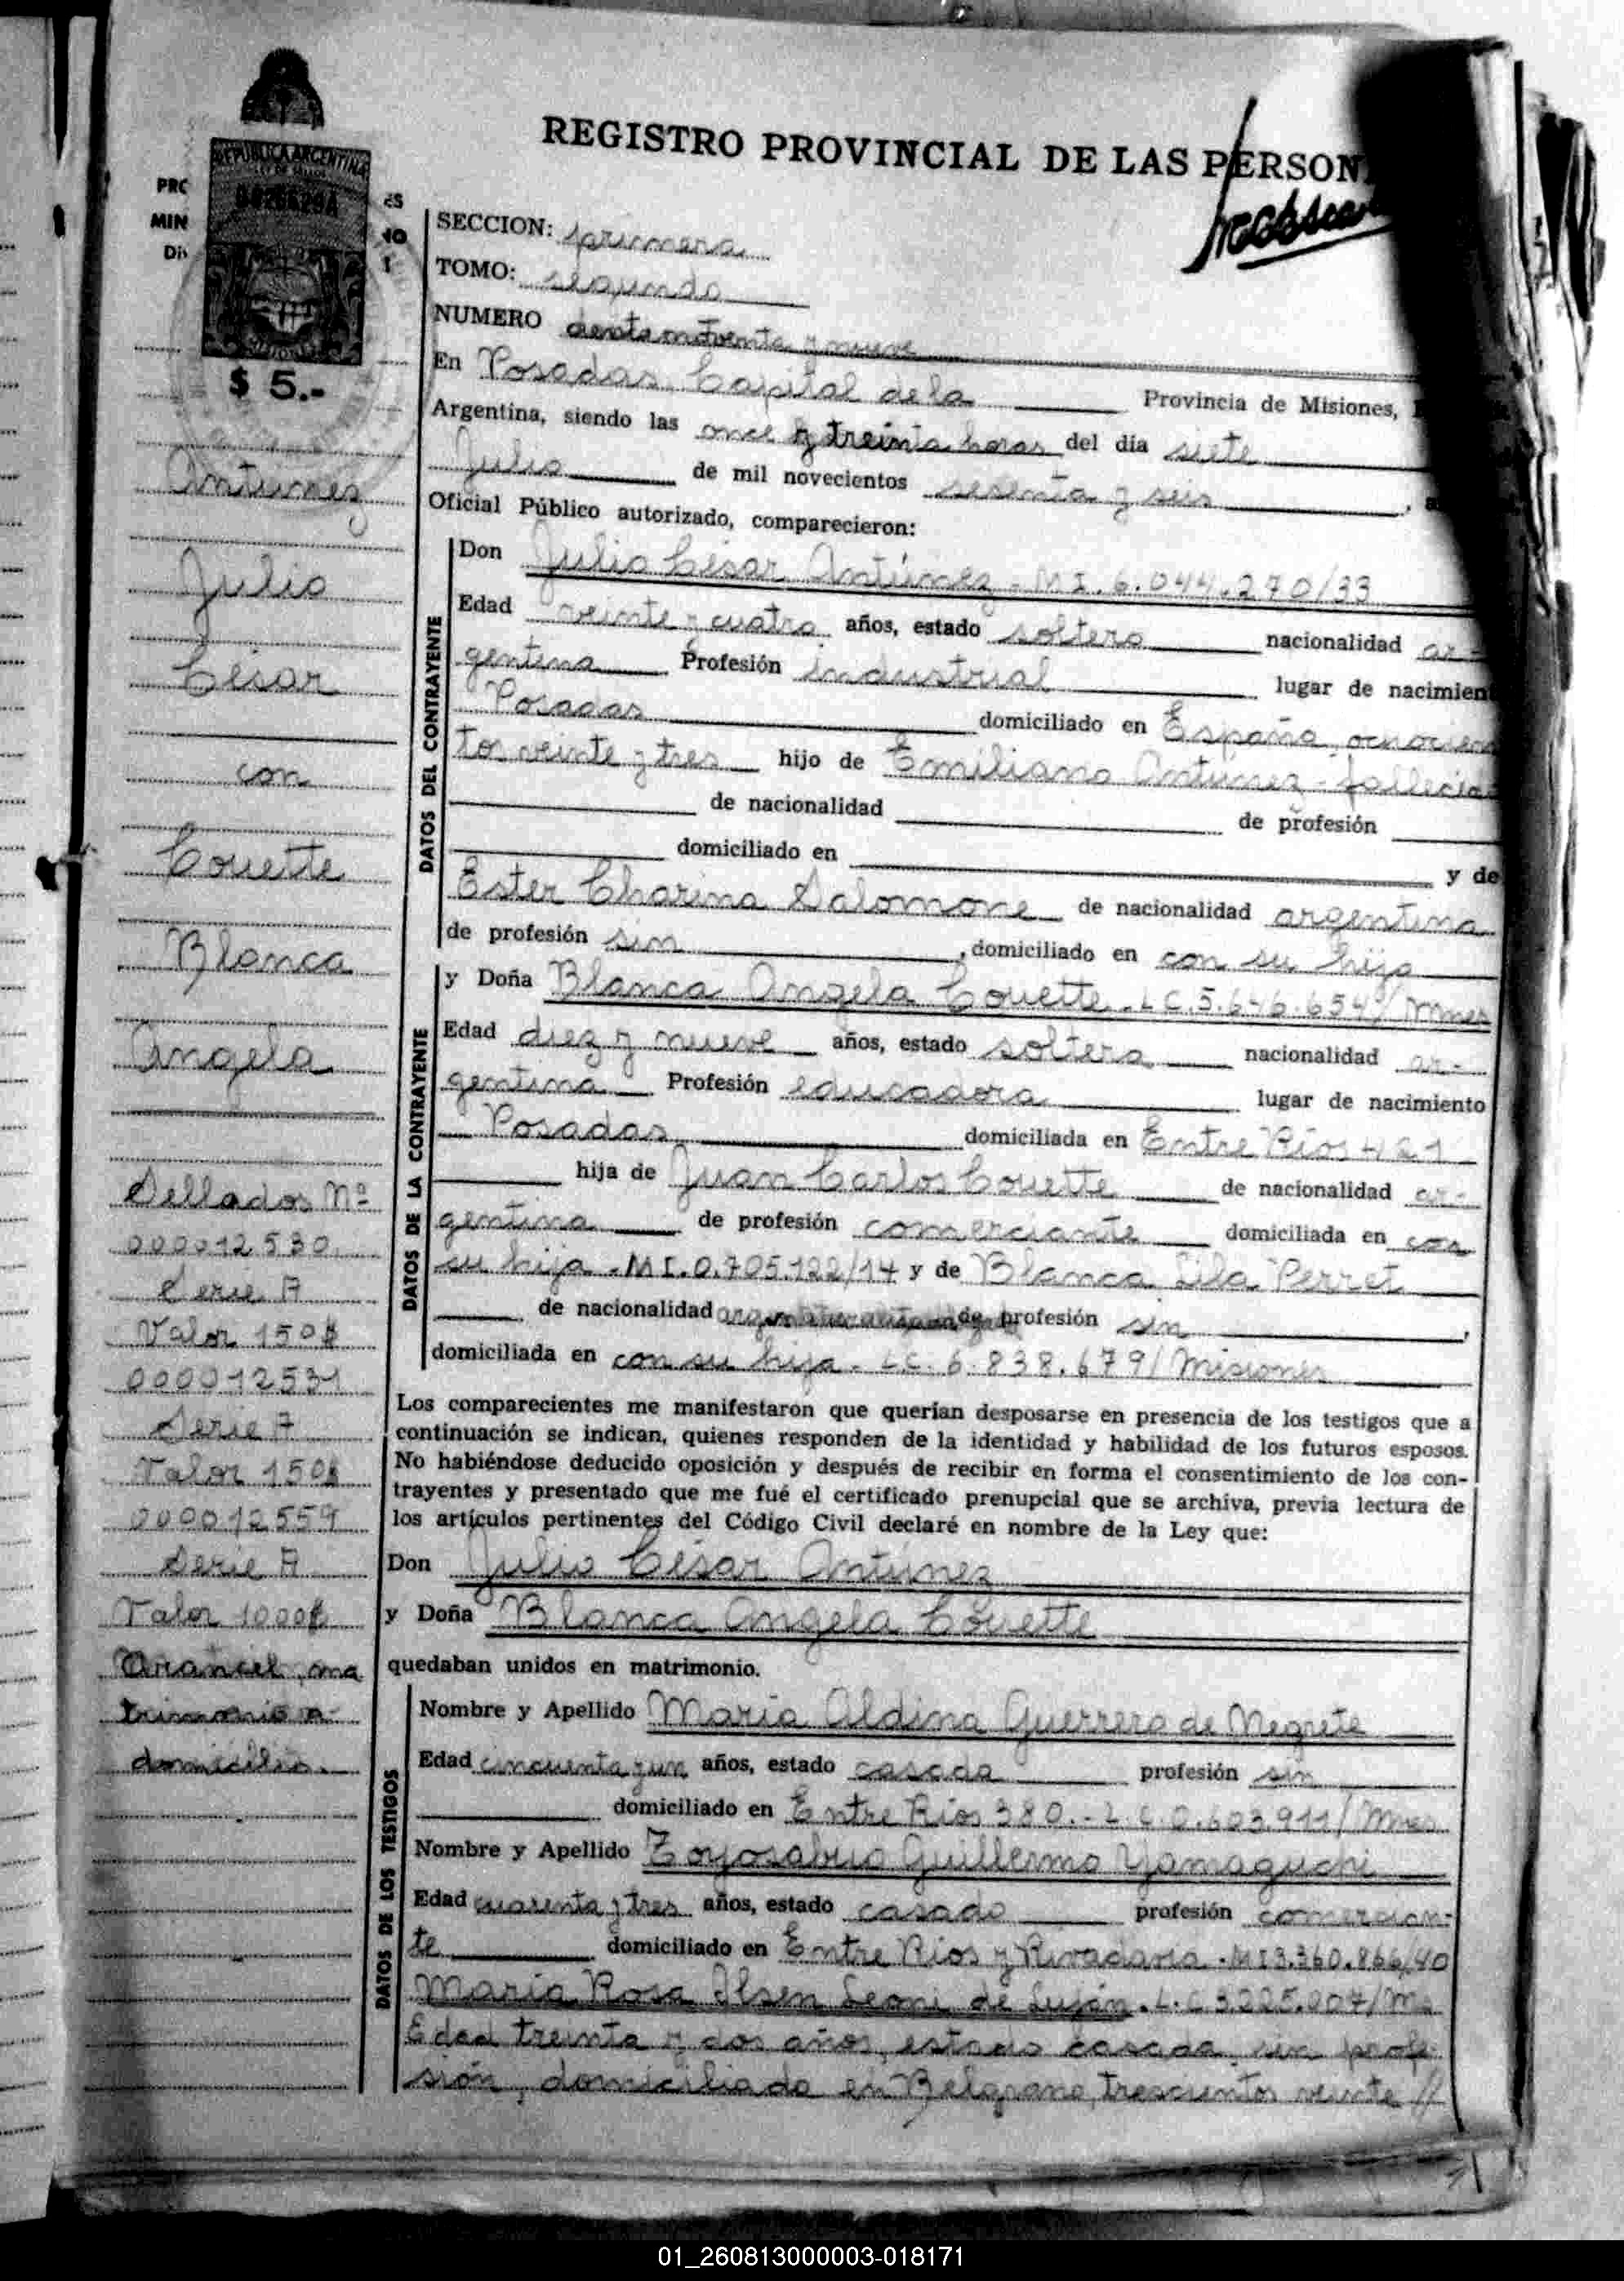 REGISTRO PROVINCIAL DE LAS PERSON
REPUBLICA ARGENTINA
LEY DE SELLOS
PRO
MIN
$ 5.-
SECCION: primera
TOMO: segundo
NUMERO ciento noventa y nueve
En Posadas Capital de la Provincia de Misiones,
Argentina, siendo las once y treinta horas del día siete
Julio de mil novecientos sesenta y seis,
Oficial Público autorizado, comparecieron:
Antúnez
Julio
César
con
Couette
Blanca
Angela
Sellados Nº
000012530
Serie A
Valor 150$
000012531
Serie A
Valor 150$
000012559
Serie A
Valor 1000$
Arancel ma
trimonio a
domicilio.
DATOS DEL CONTRAYENTE
Don Julio César Antúnez - M I. 6.044.270/33
Edad veinte y cuatro años, estado soltero nacionalidad ar-
gentina Profesión industrial lugar de nacimien
Posadas domiciliado en España ochocien
tos veinte y tres hijo de Emiliano Antúnez - fallecido
de nacionalidad de profesión
domiciliado en y de
Ester Charina Salomone de nacionalidad argentina
de profesión sin, domiciliado en con su hijo
DATOS DE LA CONTRAYENTE
y Doña Blanca Angela Couette - L C. 5.646.654/ Mnes
Edad diez y nueve años, estado soltera nacionalidad ar-
gentina Profesión educadora lugar de nacimiento
Posadas domiciliada en Entre Ríos 421
hija de Juan Carlos Couette de nacionalidad ar-
gentina de profesión comerciante domiciliada en con
su hija - M I. 0.705.122/14 y de Blanca Lila Perret
de nacionalidad de profesión sin,
domiciliada en con su hija - L C. 6.838.679/ Misiones
Los comparecientes me manifestaron que querían desposarse en presencia de los testigos que a
continuación se indican, quienes responden de la identidad y habilidad de los futuros esposos.
No habiéndose deducido oposición y después de recibir en forma el consentimiento de los con-
trayentes y presentado que me fué el certificado prenupcial que se archiva, previa lectura de
los artículos pertinentes del Código Civil declaré en nombre de la Ley que:
Don Julio César Antúnez
y Doña Blanca Angela Couette
quedaban unidos en matrimonio.
DATOS DE LOS TESTIGOS
Nombre y Apellido María Aldina Guerrero de Negrete
Edad cincuenta y un años, estado casada profesión sin
domiciliado en Entre Ríos 380.- L. C. 0.603.911/ Mnes
Nombre y Apellido Toyosabuo Guillermo Yamaguchi
Edad cuarenta y tres años, estado casado profesión comercian-
te domiciliado en Entre Ríos y Rivadavia - M I 3.360.866/40
María Rosa Ilsen Leoni de Luján - L. C 3.225.007/Ms
Edad treinta y dos años, estado casada, sin profe
sión, domiciliada en Belgrano, trescientos veinte //
01_260813000003-018171